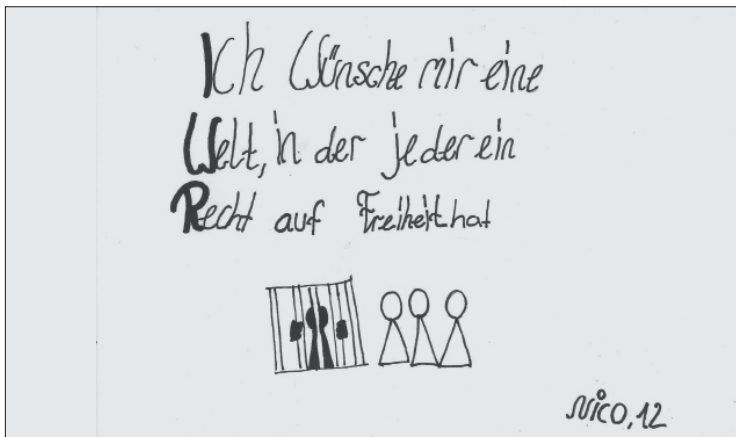 Ich Wünsche mir eine
Welt, in der jeder ein
Recht auf Freiheit hat
Nico, 12